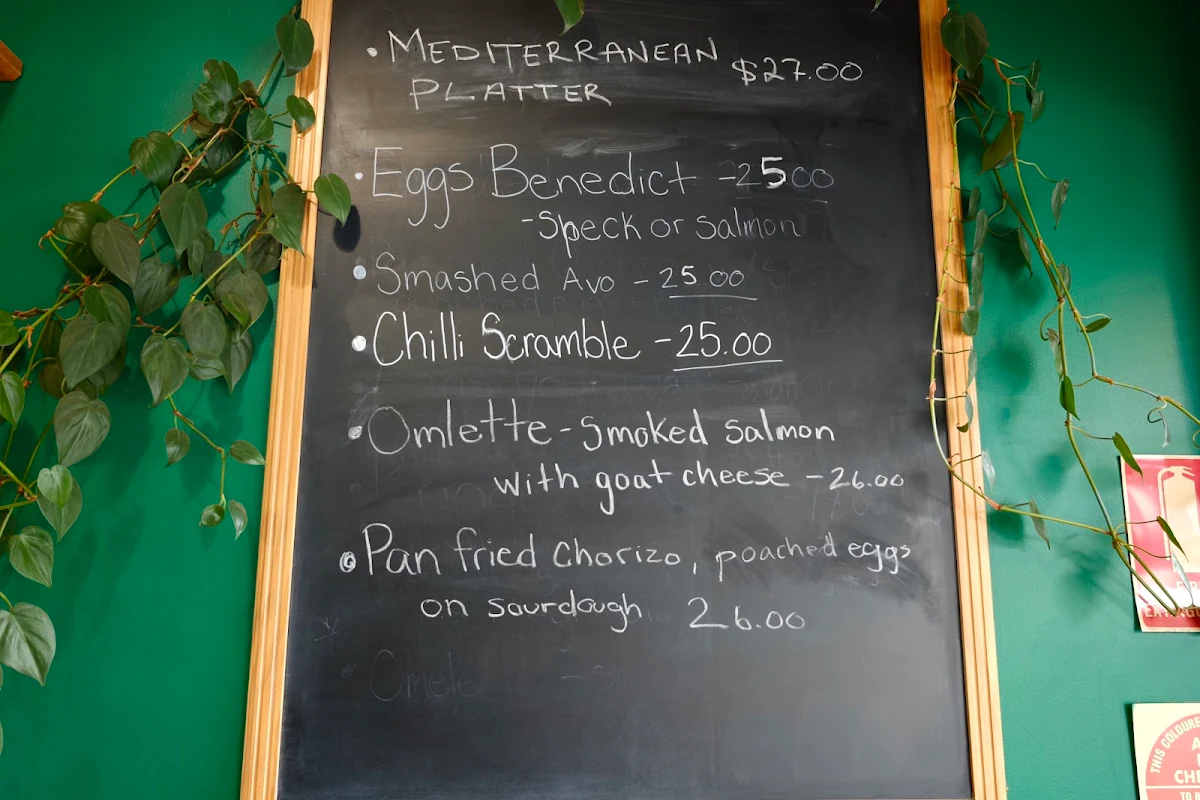 • MEDITERRANEAN $27.00
PLATTER
• Eggs Benedict -2500
-speck or salmon
• Smashed Avo - 25.00
• Chilli Scramble - 25.00
• Omlette - Smoked salmon
with goat cheese - 26.00
• Pan fried Chorizo, poached eggs
on sourdough 26.00
THIS COLOURE
CHE